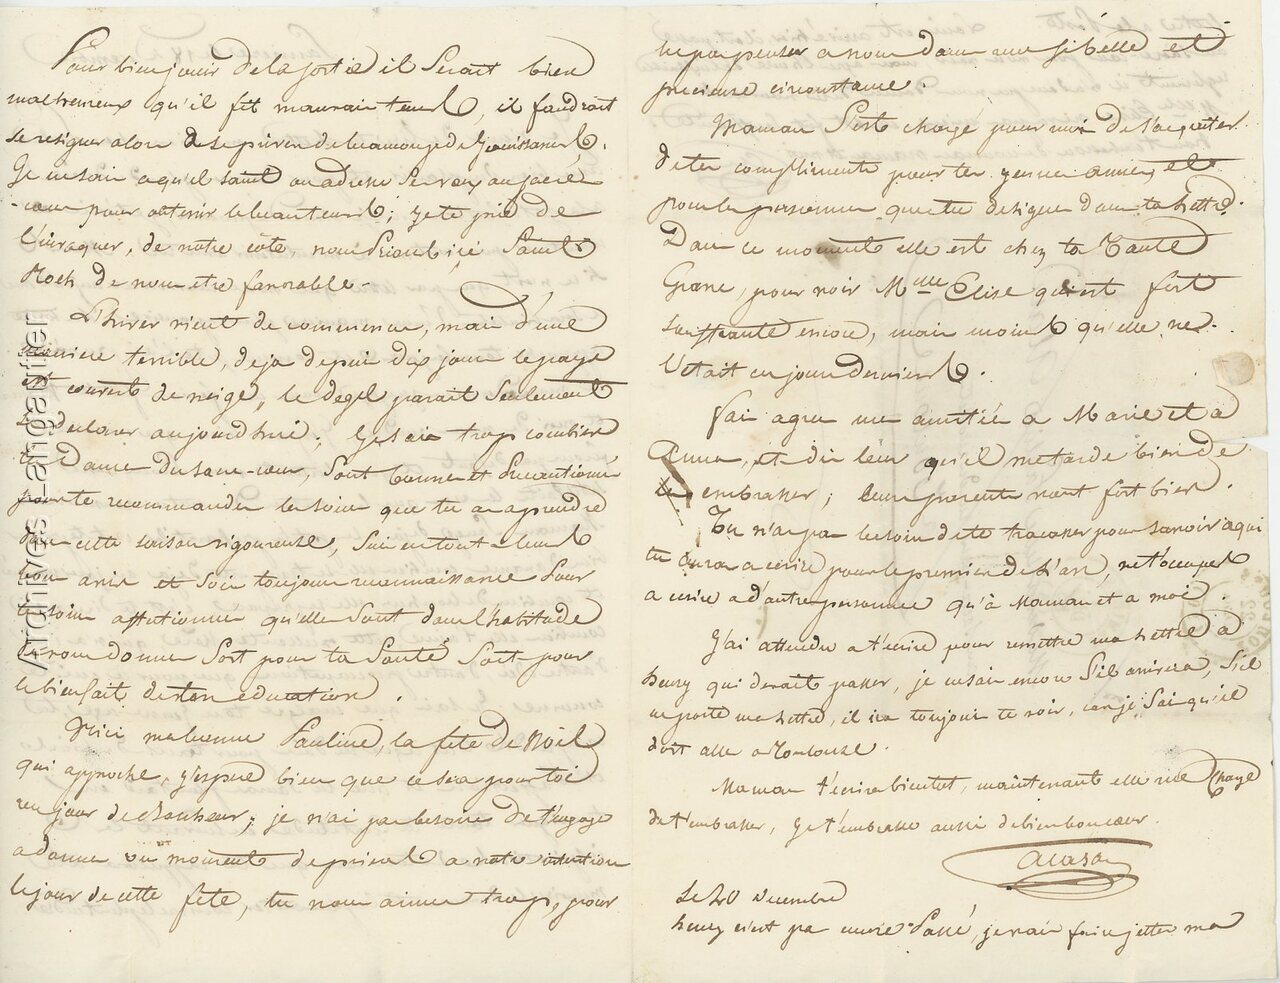 Pour bien jouir de la sortie il serait bien
malheureux qu'il fit mauvais temps, il faudrait
se resigner alors de se priver de beaucoup de jouissances.
Je ne sais a quel saint on adresse ses vœux au sacré
cœur pour obtenir le beau temps; je te prie de
l'invoquer, de notre côté, nous prions ici Saint
Roch de nous etre favorable.
L'hiver vient de commencer, mais d'une
maniere terrible, deja depuis dix jours le pays
est couvert de neige, le degel parait seulement
se declarer aujourdhui; je sais trop combien
Dames du sacré-cœur, sont bonnes et
pour te recommander les soins que tu as a prendre
dans cette saison rigoureuse, suis en tout leurs
bons avis et sois toujours reconnaissante pour
les soins affectionnés qu'elles sont dans l'habitude
de vous donner soit pour ta santé soit pour
le bienfait de ton education.
Voici ma bonne Pauline, la fête de Noël
qui approche, j'espere bien que ce sera pour toi
un jour de bonheur; je n'ai pas besoin de t'engager
a donner un moment de prieres a notre intention
le jour de cette fête, tu nous aimes trop, pour
ne pas penser a nous dans une si belle et
precieuse circonstance.
Maman s'est chargé pour moi de s'acquitter
de tes compliments pour tes jeunes amies, et
pour les personnes que tu designes dans ta lettre.
Dans ce moment elle est chez ta Tante
pour voir Mlle Elise qui est fort
souffrante encore, mais moins qu'elle ne
l'était ces jours derniers.
Fais agréer mes amitiés a Marie et a
Anna, et dis leur qu'il me tarde bien de
les embrasser; leurs parents vont fort bien.
Tu n'as pas besoin de te tracasser pour savoir a qui
tu auras a ecrire pour le premier de l'an, ne t'occupes
a ecrire a d'autres personnes qu'à Maman et a moi.
J'ai attendu a t'ecrire pour remettre ma lettre a
henry qui devait passer, je ne sais encore s'il arrivera, s'il
ne porte ma lettre, il ira toujours te voir, car je sais qu'il
doit aller a Toulouse.
Maman t'écrira bientot, maintenant elle me charge
de t'embrasser, je t'embrasse aussi de bien bon cœur.
Le 20 Decembre
henry n'est pas encore passé, je vais faire jetter ma
Archives Langautier